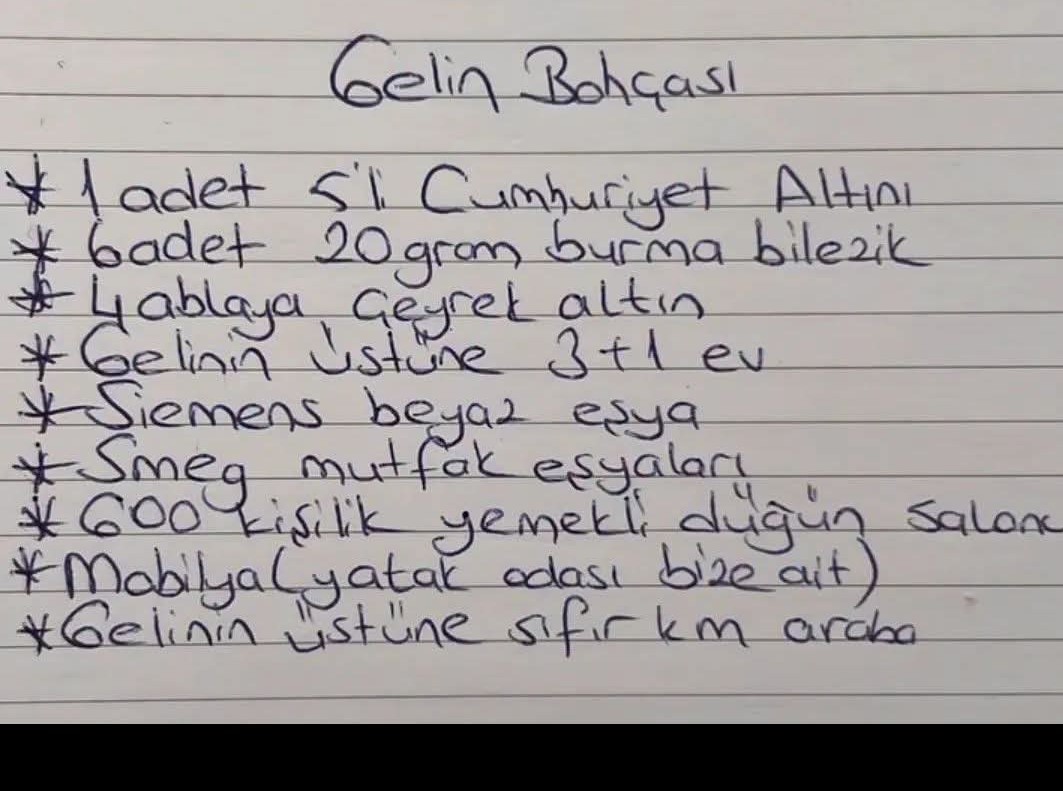 Gelin Bohçası
* 1 adet 5'li Cumhuriyet Altını
* 6 adet 20 gram burma bilezik
* 4 ablaya çeyrek altın
* Gelinin üstüne 3+1 ev
* Siemens beyaz eşya
* Smeg mutfak eşyaları
* 600 kişilik yemekli düğün salonu
* Mobilya (yatak odası bize ait)
* Gelinin üstüne sıfır km araba